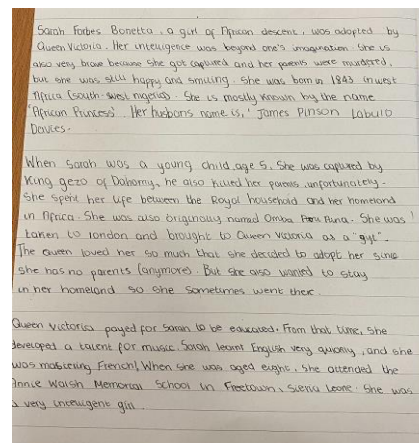 Sarah Forbes Bonetta, a girl of African descent, was adopted by
Queen Victoria. Her intelligence was beyond one's imagination. She is
also very brave because she got captured and her parents were murdered,
but she was still happy and smiling. She was born in 1843 in west
Africa (south-west nigeria). She is mostly known by the name
'African Princess'. Her husbans name is, 'James Pinson Labulo
Davies.
When Sarah was a young child, age 5, She was captured by
King gezo of Dahomy, he also killed her parents, unfortunately.
She spent her life between the Royal household and her homeland
in Africa. She was also originally named Omba Puna. She was
taken to london and brought to Queen Victoria as a "gyt".
The Queen loved her so much that she decided to adopt her since
she has no parents (anymore). But she also wanted to stay
in her homeland so she sometimes went there.
Queen Victoria payed for Sarah to be educated. From that time, she
developed a talent for music. Sarah learnt English very quickly, and she
was mastering French! When she was aged eight, she attended the
Annie Walsh Memorial School in Freetown, Sierra Leone. She was
a very intelligent girl.